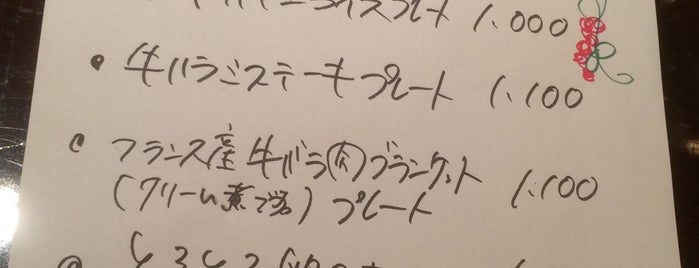 ライスプレート 1.000
• 牛ハラミステーキプレート 1.100
• フランス産牛バラ肉ブランケット
(クリーム煮です) プレート 1.100